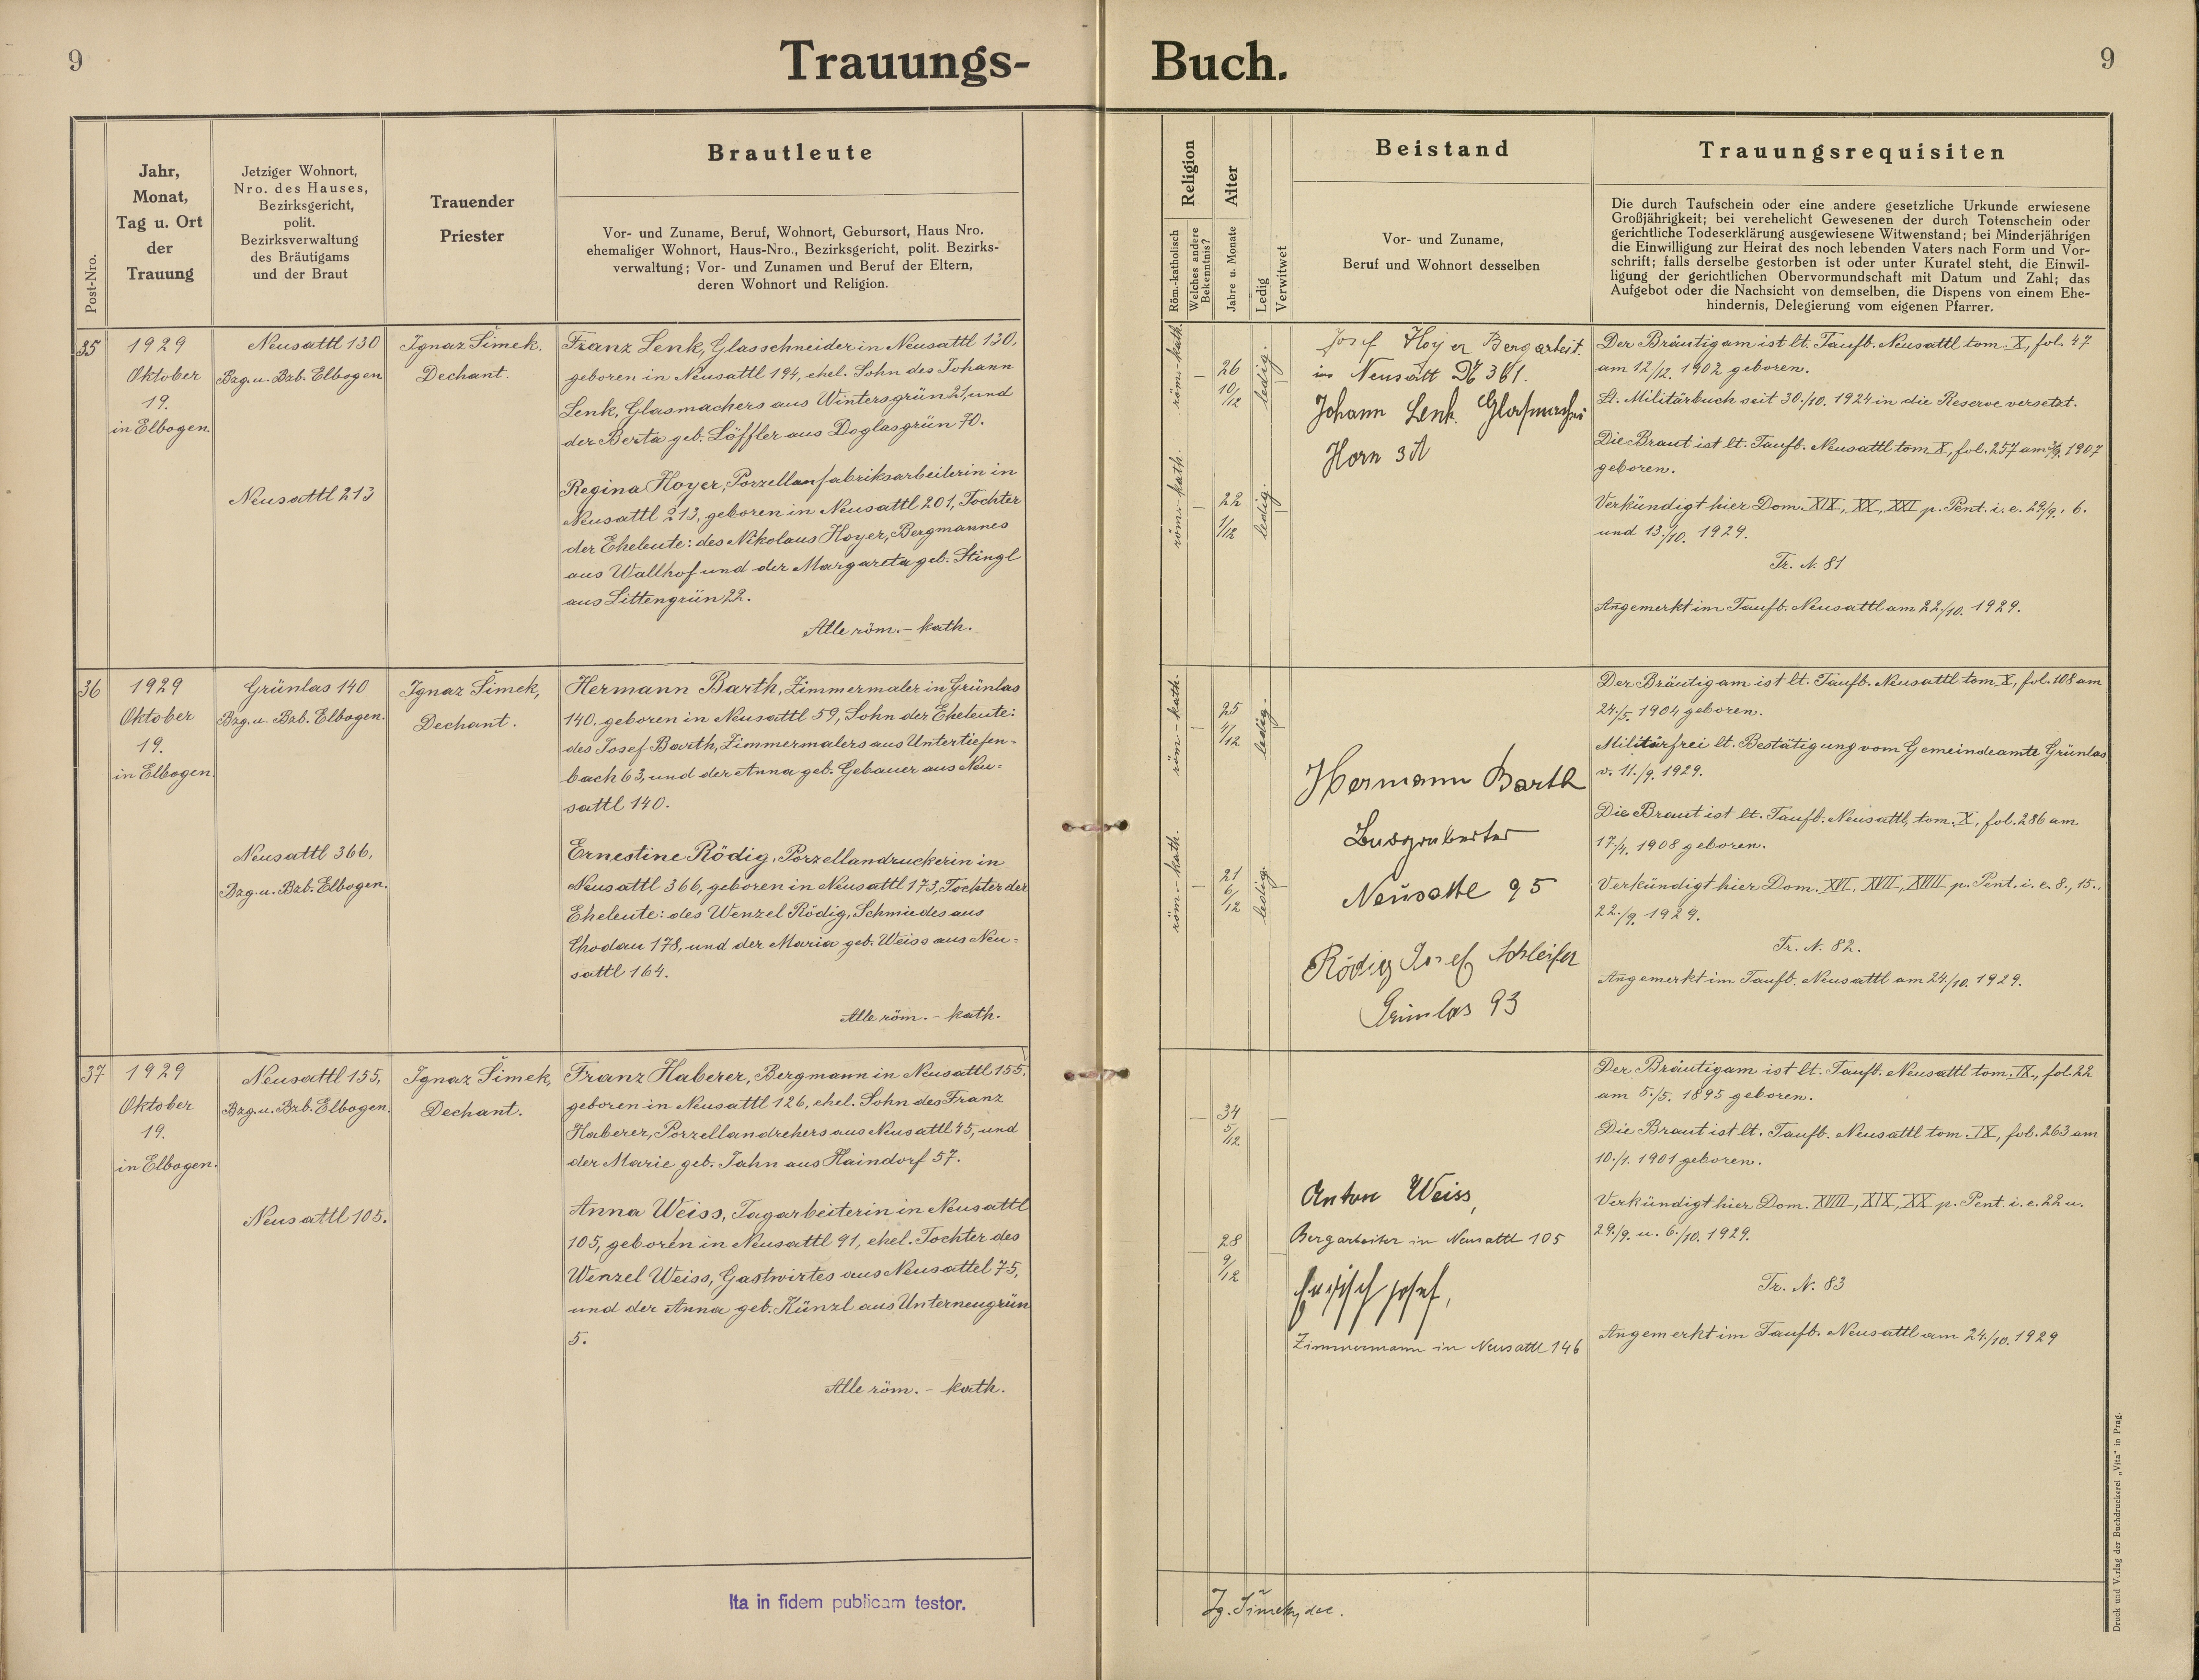 9
Trauungs-
Buch.
9
Post-Nro.
Jahr,
Monat,
Tag u. Ort
der
Trauung
Jetziger Wohnort,
Nro. des Hauses,
Bezirksgericht,
polit.
Bezirksverwaltung
des Bräutigams
und der Braut
Trauender
Priester
Brautleute
Vor- und Zuname, Beruf, Wohnort, Geburtsort, Haus Nro.
ehemaliger Wohnort, Haus-Nro., Bezirksgericht, polit. Bezirks-
verwaltung; Vor- und Zunamen und Beruf der Eltern,
deren Wohnort und Religion.
Religion
Röm.-katholisch
Welches andere
Bekenntnis?
Alter
Jahre u. Monate
Ledig
Verwitwet
Beistand
Vor- und Zuname,
Beruf und Wohnort desselben
Trauungsrequisiten
Die durch Taufschein oder eine andere gesetzliche Urkunde erwiesene
Großjährigkeit; bei verehelicht Gewesenen der durch Totenschein oder
gerichtliche Todeserklärung ausgewiesene Witwenstand; bei Minderjährigen
die Einwilligung zur Heirat des noch lebenden Vaters nach Form und Vor-
schrift; falls derselbe gestorben ist oder unter Kuratel steht, die Einwil-
ligung der gerichtlichen Obervormundschaft mit Datum und Zahl; das
Aufgebot oder die Nachsicht von demselben, die Dispens von einem Ehe-
hindernis, Delegierung vom eigenen Pfarrer.
35
1929
Oktober
19.
in Elbogen.
Neusattl 130
Bzg. u. Bzb. Elbogen
Neusattl 213
Ignaz Šimek.
Dechant.
Franz Lenk, Glasschneider in Neusattl 130,
geboren in Neusattl 194, ehel. Sohn des Johann
Lenk, Glasmachers aus Wintersgrün 21, und
der Berta geb. Löffler aus Doglasgrün 70.
Regina Hoyer, Porzellanfabriksarbeiterin in
Neusattl 213, geboren in Neusattl 201, Tochter
der Eheleute: des Nikolaus Hoyer, Bergmannes
aus Wallhof und der Margareta geb. Stingl
aus Littengrün 22.
Alle röm.-kath.
röm.-kath.
26
10/12
ledig.
röm.-kath.
22
1/12
ledig.
Josef Hoyer Bergarbeit.
in Neusatt № 361.
Johann Lenk. Glasmacher
Horn 31
Der Bräutigam ist lt. Taufb. Neusattl tom. X, fol. 47
am 12/12. 1902 geboren.
Lt. Militärbuch seit 30./10. 1924 in die Reserve versetzt.
Die Braut ist lt. Taufb. Neusattl tom X, fol. 257 am 1907
geboren.
Verkündigt hier Dom. XIX, XX, XXI p. Pent. i. e. 29/9., 6.
und 13./10. 1929.
Tr. N. 81
Angemerkt im Taufb. Neusattl am 22./10. 1929.
36
1929
Oktober
19.
in Elbogen.
Grünlas 140
Bzg. u. Bzb. Elbogen.
Neusattl 366,
Bzg. u. Bzb. Elbogen.
Ignaz Šimek,
Dechant.
Hermann Barth, Zimmermaler in Grünlas
140, geboren in Neusattl 59, Sohn der Eheleute:
des Josef Barth, Zimmermalers aus Untertiefen=
bach 63, und der Anna geb. Gebauer aus Neu=
sattl 140.
Ernestine Rödig, Porzellandruckerin in
Neusattl 366, geboren in Neusattl 173, Tochter der
Eheleute: des Wenzel Rödig, Schmiedes aus
Chodau 178, und der Maria geb. Weiss aus Neu=
sattl 164.
Alle röm.-kath.
röm-kath.
25
4/12
ledig.
röm.-kath.
21
6/12
ledig.
Hermann Barth
Neusattl 95
Rödig Josef Schleifer
Grünlas 93
Der Bräutigam ist lt. Taufb. Neusattl tom. X, fol. 108 am
24./5. 1904 geboren.
Militärfrei lt. Bestätigung vom Gemeindeamte Grünlas
v. 11./9. 1929.
Die Braut ist lt. Taufb. Neusattl, tom. X, fol. 286 am
17./4. 1908 geboren.
Verkündigt hier Dom. XVI, XVII, XVIII p. Pent. i. e. 8., 15.,
22./9. 1929.
Tr. N. 82.
Angemerkt im Taufb. Neusattl am 24./10. 1929.
37
1929
Oktober
19.
in Elbogen.
Neusattl 155,
Bzg. u. Bzb. Elbogen.
Neusattl 105.
Ignaz Šimek,
Dechant.
Franz Haberer, Bergmann in Neusattl 155,
geboren in Neusattl 126, ehel. Sohn des Franz
Haberer, Porzellandrehers aus Neusattl 45, und
der Marie geb. Jahn aus Haindorf 57.
Anna Weiss, Tagarbeiterin in Neusattl
105, geboren in Neusattl 91, ehel. Tochter des
Wenzel Weiss, Gastwirtes aus Neusattel 75,
und der Anna geb. Künzl aus Unterneugrün
5.
Alle röm.-kath.
34
5/12
28
9/12
Anton Weiss,
Bergarbeiter in Neusattl 105
Josef,
Zimmermann in Neusattl 146
Der Bräutigam ist lt. Taufb. Neusattl tom. IX, fol. 22
am 5./5. 1895 geboren.
Die Braut ist lt. Taufb. Neusattl tom. IX, fol. 263 am
10./1. 1901 geboren.
Verkündigt hier Dom. XVIII, XIX, XX p. Pent. i. e. 22 u.
29./9. u. 6./10. 1929.
Tr. N. 83
Angemerkt im Taufb. Neusattl am 24./10. 1929
Ita in fidem publicam testor.
Ig. Šimek, dec.
Druck und Verlag der Buchdruckerei „Vita" in Prag.